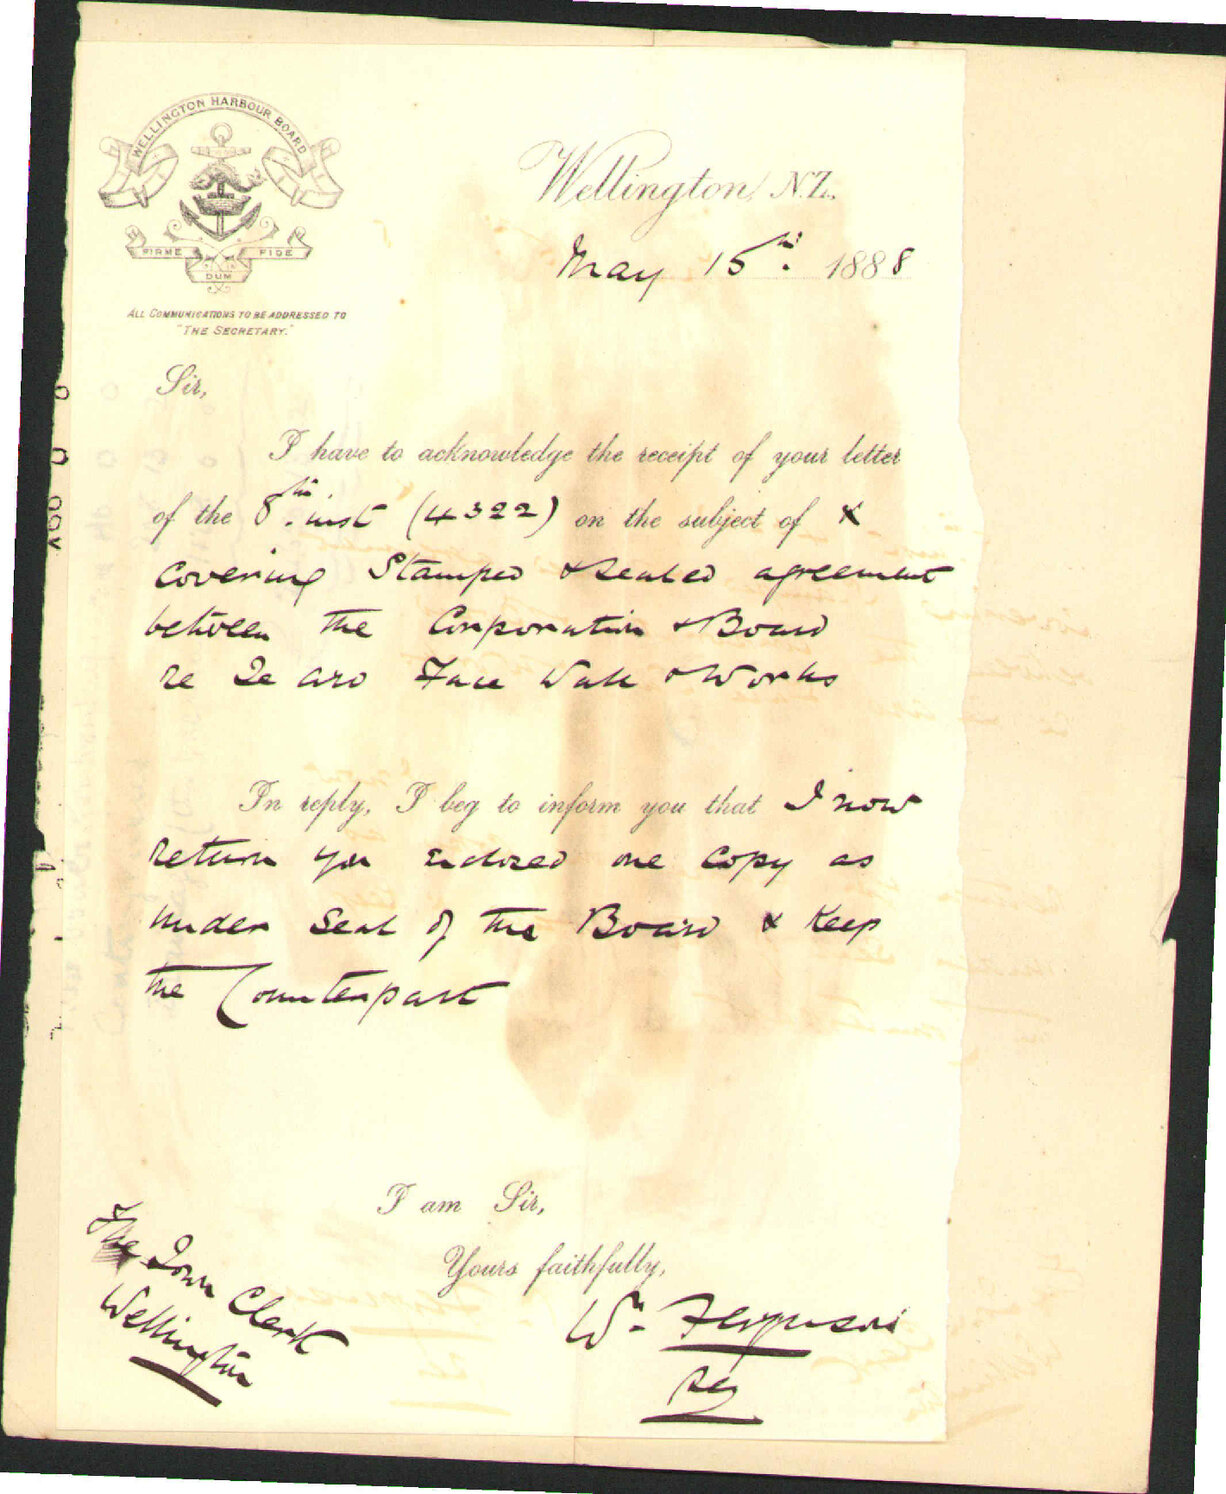 WELLINGTON HARBOUR BOARD
FIRME DUM FIDE
ALL COMMUNICATIONS TO BE ADDRESSED TO
"THE SECRETARY."
Wellington, N.Z.,
May 15th. 1888
Sir,
I have to acknowledge the receipt of your letter
of the 8th. inst (4322) on the subject of x
covering Stamped & sealed agreement
between the Corporation & Board
re Te aro Face Wall & Works
In reply, I beg to inform you that I now
return you enclosed one copy as
under Seal of the Board & Keep
the Counterpart
I am Sir,
Yours faithfully,
Wm. Ferguson
Sey
The Town Clerk
Wellington